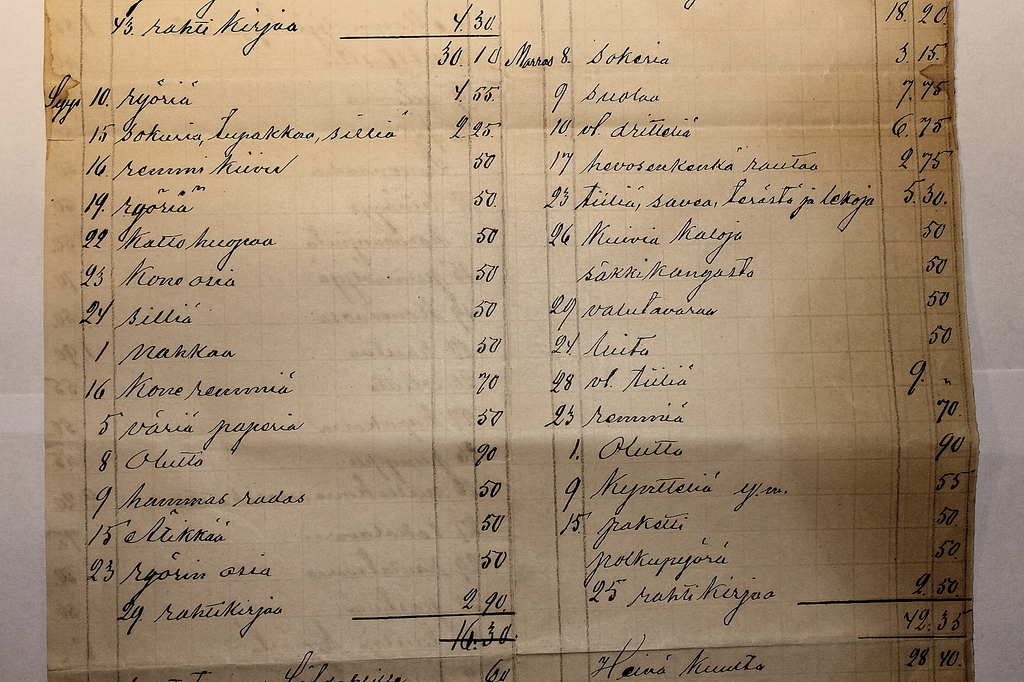 43. rahti kirjaa 4.30.
30.10
Syys 10. ryöriä 4.55.
15 sokuria, tupakkaa, silliä 2.25.
16. remmi kiivu 50
19. ryöriä " 50.
22 Katto huopaa 50
23 Kone osia 50
24 silliä 50
1 Nahkaa 50
16 Kone remmiä 70
5 väriä paperia 50
8 Olutta 90
9 hammas radas 50
15 Ätikkää 50
23 ryörin osia 50
29. rahtikirjaa 2.90.
16.30
60
18.20.
Marras 8. sokeria 3.15.
9 suolaa 7.75
10. vl. dritteliä 6.75
17 hevosenkenkä rautaa 2.75
23 tiiliä, savea, terästä ja lekoja 5.30.
26 Kuivia Kaloja 50
säkki Kangasta 50
29 valutavaraa 50
24. luita 50
28 vl. tiiliä 9. "
23 remmiä 70.
1. Olutta 90
9 Kyntteliä y.m. 55
15. paketti 50.
polkupyörä 50.
25 rahti Kirjaa 2.50
42.35
Heinä Kuulta 28.40.